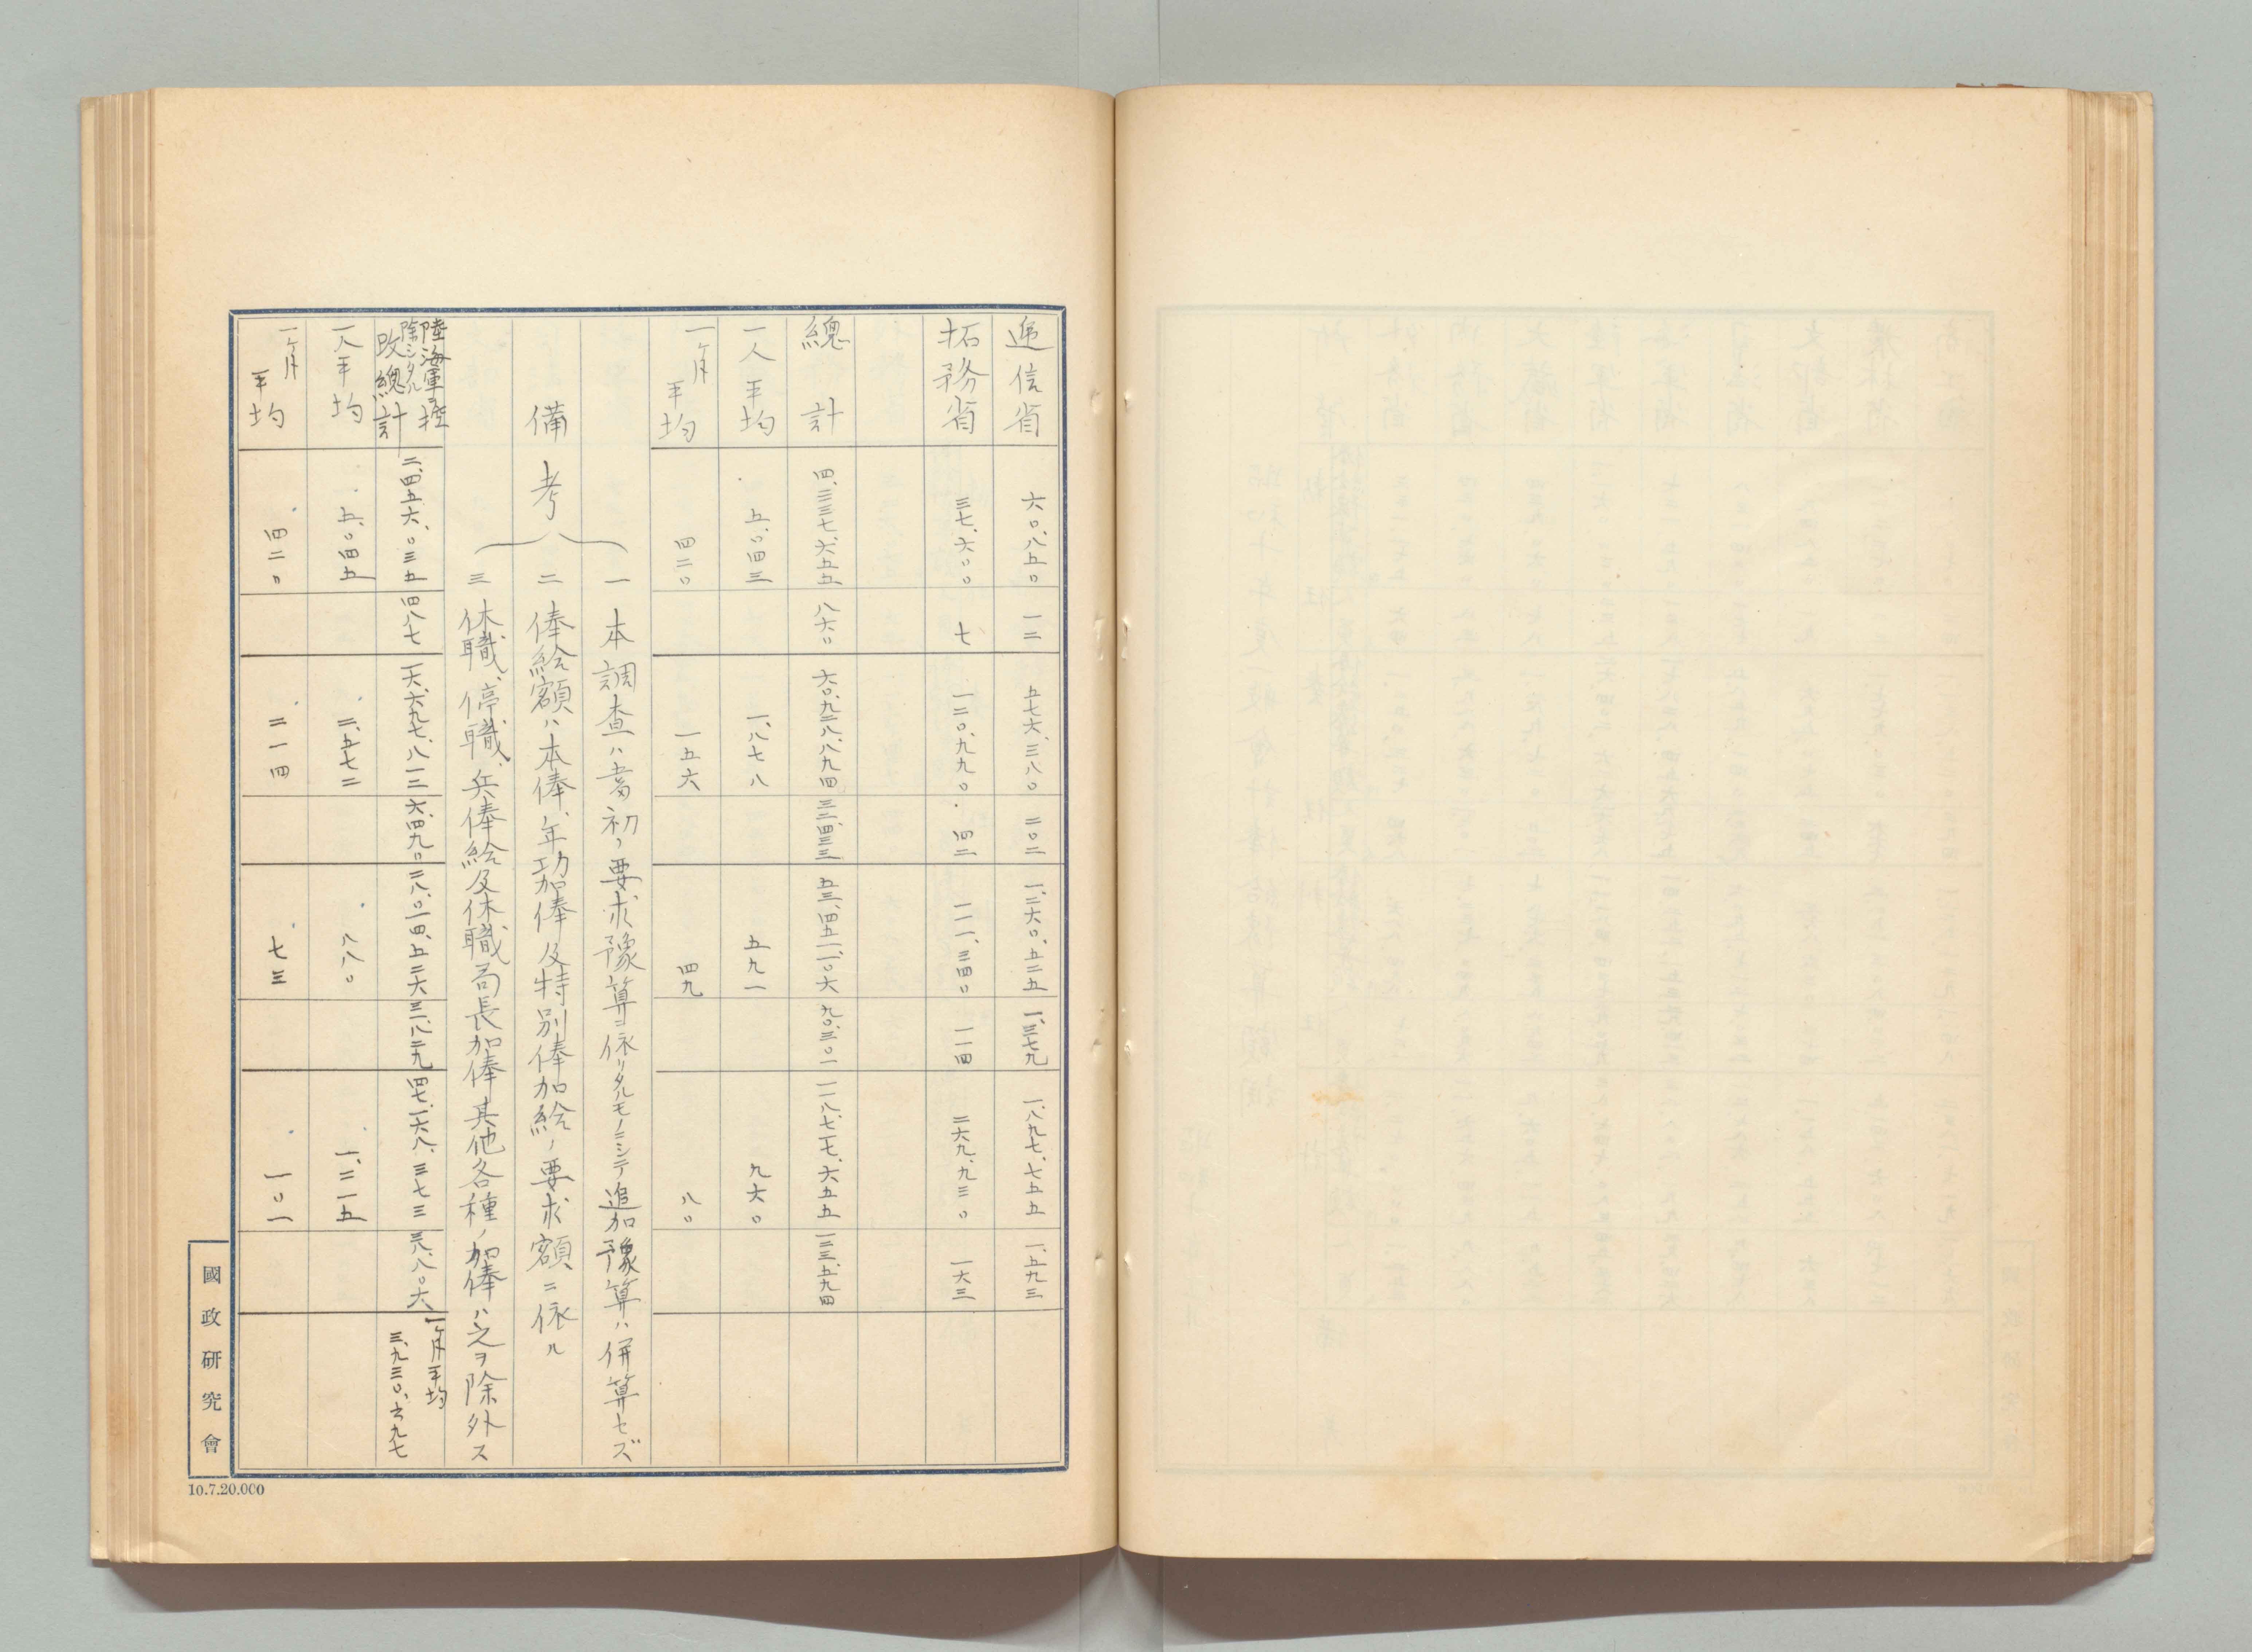 遞信省 六〇、八五〇 一二 五七六、三八〇 二〇二 一、二六〇、五二五 一、三七九 一、八九七、七五五 一、五九三
拓務省 三七、六〇〇 七 一二〇、九九〇 四二 一一一、三四〇 一一四 二六九、九三〇 一六三
總計 四、三三七、六五五 八六〇 六〇、九二八、八九四 三二、四三三 五三、四五一、一〇六 九〇、三〇一 一一八、七一七、六五五 一二三、五九四
一人平均 五、〇四三 一、八七八 五九一 九六〇
一ヶ月平均 四二〇 一五六 四九 八〇
備考
一 本調査ハ當初ノ要求豫算ニ依リタルモノニシテ追加豫算ハ併算セズ
二 俸給額ハ本俸、年功加俸及特別俸加給ノ要求額ニ依ル
三 休職、停職、兵俸給及休職局長加俸其他各種ノ加俸ハ之ヲ除外ス
陸海軍ヲ控
除シタル
改總計 二、四五六、〇三五 四八七 一六、六九七、八一二 六、四九〇 二八、〇一四、五二六 三一、八二九 四七、一六八、三七三 三八、八〇六
一ヶ月平均
三、九三〇、六九七
一人平均 五、〇四五 二、五七二 八八〇 一、二一五
一ヶ月平均 四二〇 二一四 七三 一〇一
國政研究會
10.7.20.000